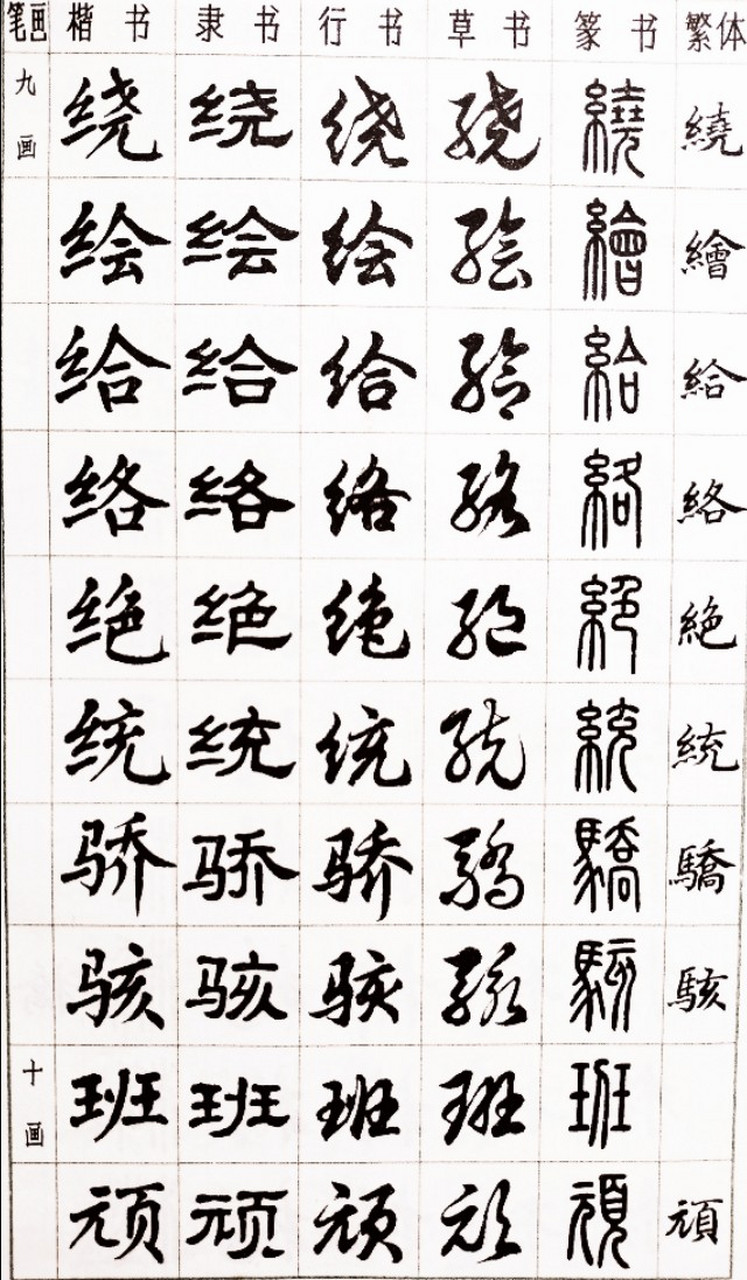 笔画 楷书 隶书 行书 草书 篆书 繁体
九画 绕 绕 绕 绕 繞 繞
绘 绘 绘 绘 繪 繪
给 给 给 给 給 給
络 络 络 络 絡 絡
绝 绝 绝 绝 絕 絶
统 统 统 统 統 統
骄 骄 骄 骄 驕 驕
骇 骇 骇 骇 駭 駭
十画 班 班 班 班 班
顽 顽 顽 顽 頑 頑